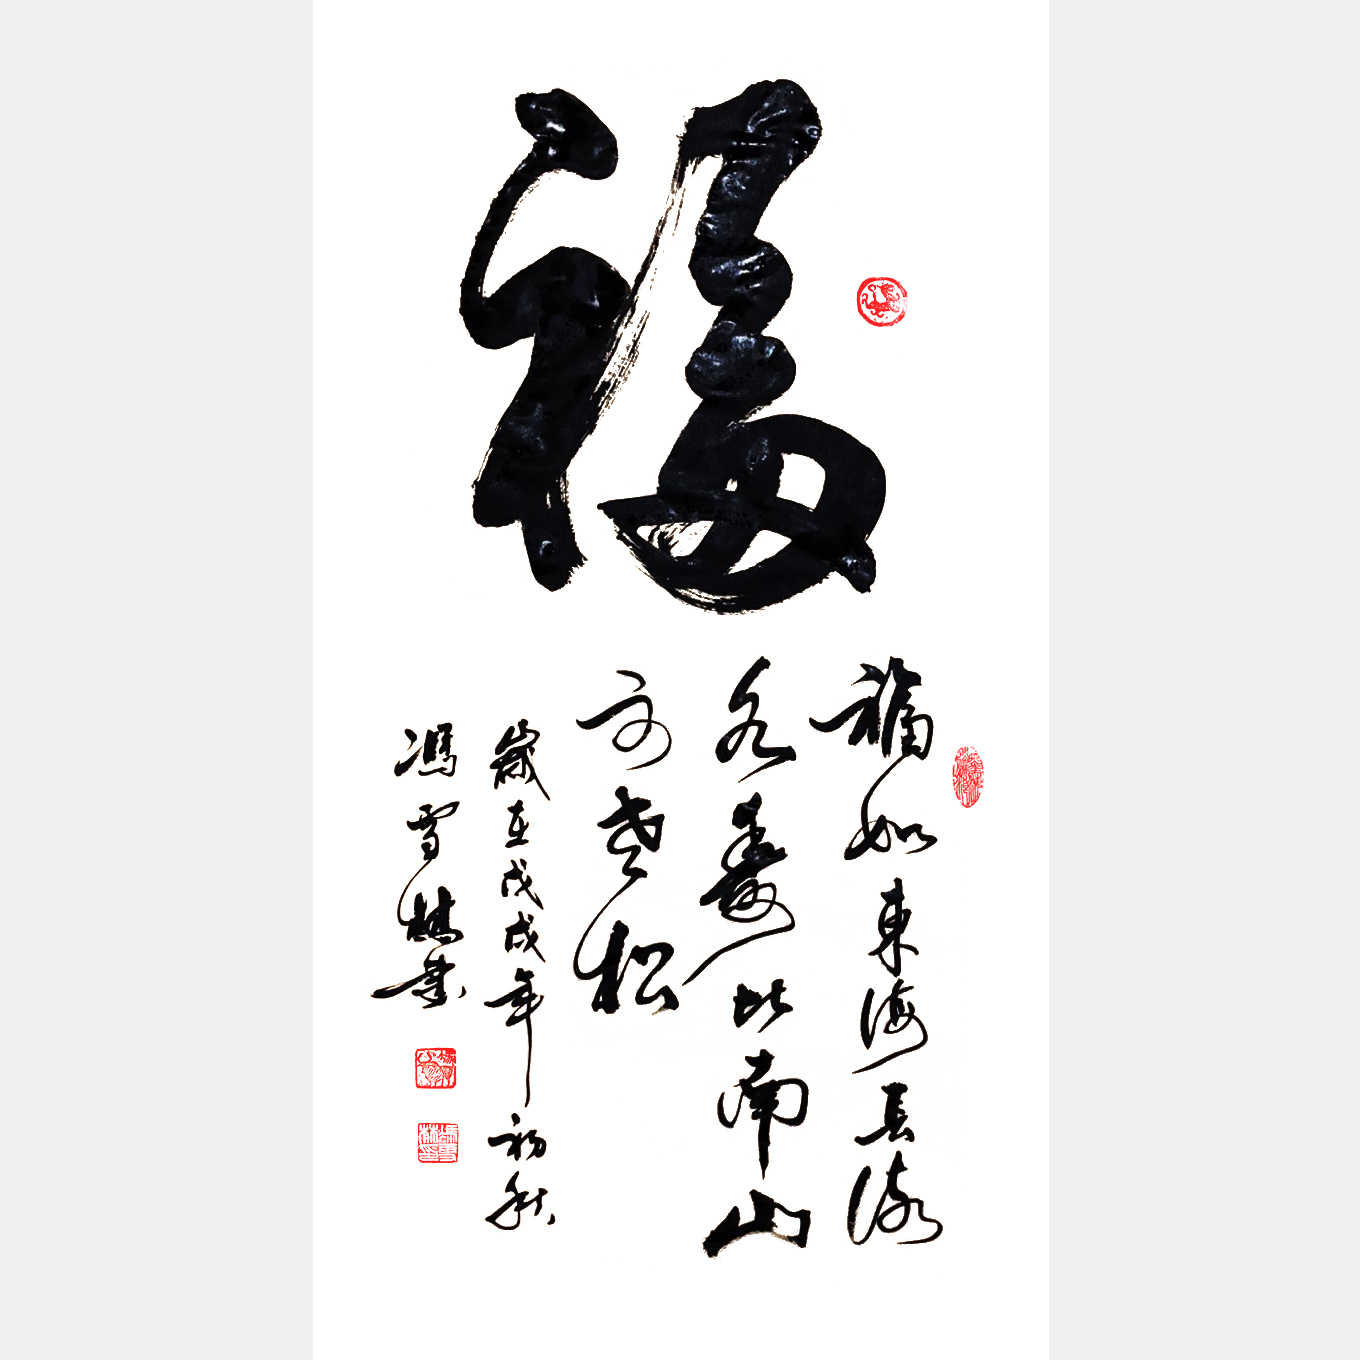 福
福如東海長流
水壽比南山
不老松
歲在戊戌年初秋
馮雪林書